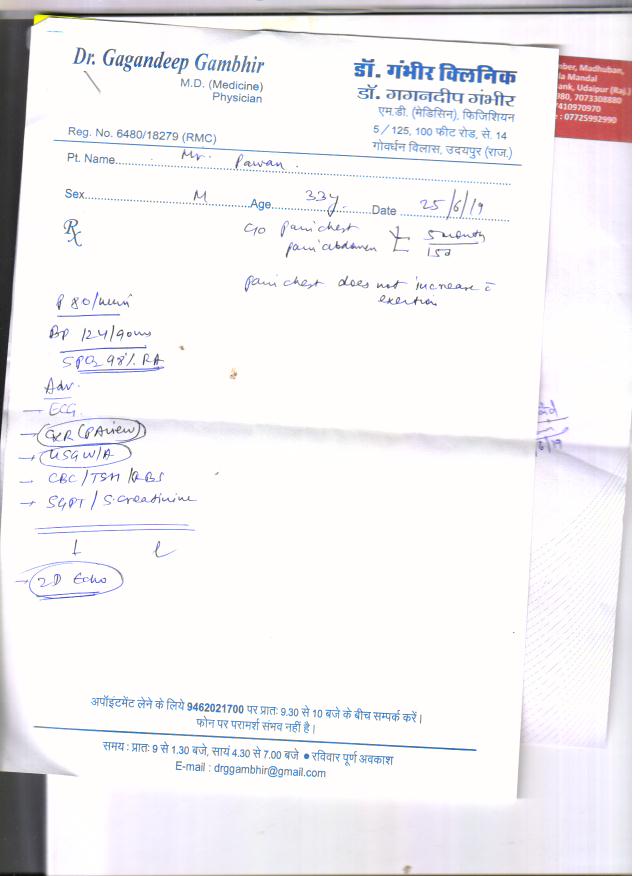 Dr. Gagandeep Gambhir
M.D. (Medicine)
Physician
Reg. No. 6480/18279 (RMC)
डॉ. गंभीर क्लिनिक
डॉ. गगनदीप गंभीर
एम.डी. (मेडिसिन), फिजिशियन
5/125, 100 फीट रोड, से. 14
गोवर्धन विलास, उदयपुर (राज.)
Pt. Name Mr. Pawan.
Sex M Age 33y Date 25/6/19
Rx
C/o pain chest
pain abdomen
5 month
15d
pain chest does not increase c
exertion
P 80/min
BP 124/90
SPO2 98% RA
Adv.
→ ECG.
→ CXR (PA view)
→ USG W/A
→ CBC/TSH/RBS
→ SGPT/S.creatinine
→ 2D Echo
अपॉइंटमेंट लेने के लिये 9462021700 पर प्रातः 9.30 से 10 बजे के बीच सम्पर्क करें।
फोन पर परामर्श संभव नहीं है।
समय : प्रातः 9 से 1.30 बजे, सायं 4.30 से 7.00 बजे ● रविवार पूर्ण अवकाश
E-mail : drggambhir@gmail.com
mber, Madhuban,
la Mandal
ank, Udaipur (Raj.)
980, 7073308880
7410970970
: 07725992990
6/19